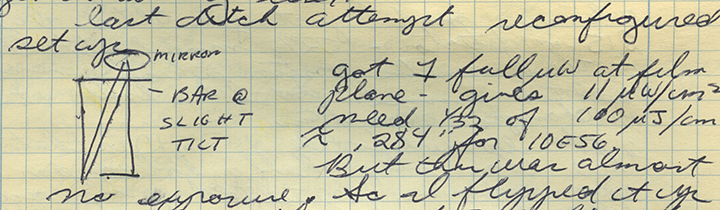 last ditch attempt reconfigured
set up
MIRROR
BAR @
SLIGHT
TILT
got 7 full uW at film
plane - gives 11 μW/cm²
need 1/32 of 100 μJ/cm
,284" for 10E56.
But this was almost
no exposure. So I flipped it up